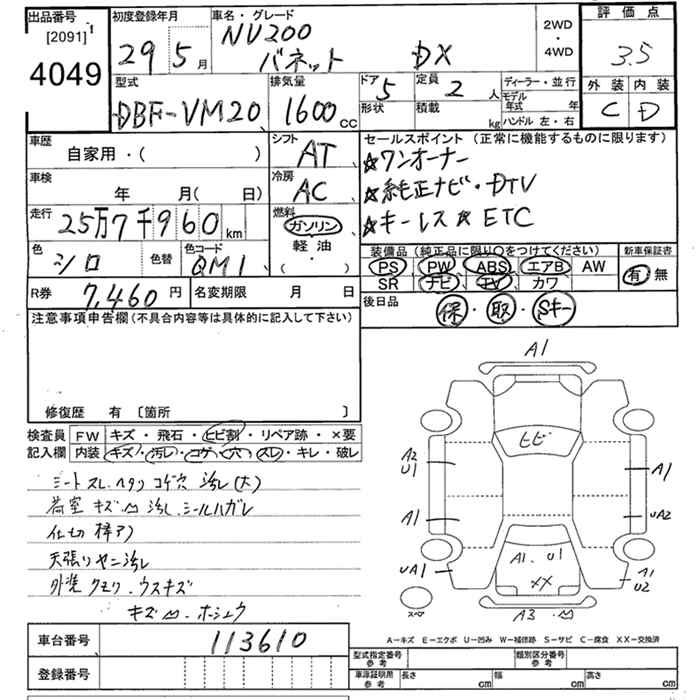 出品番号
[2091] 1
4049
初度登録年月
29年 5月
車名・グレード
NV200
バネット DX
2WD
・
4WD
評価点
3.5
外装 内装
C D
型式
DBF-VM20
排気量
1600 CC
ドア 5
形状
定員 2 人
積載 kg
ディーラー・並行
モデル年式 年
ハンドル 左・右
車歴
自家用・( )
シフト
AT
セールスポイント (正常に機能するものに限ります)
☆ワンオーナー
☆純正ナビ・DTV
☆キーレス☆ETC
車検
年 月( 日)
冷房
AC
走行
25万7千960 km
燃料
ガソリン
軽油
( ・ )
色
シロ
色替
色コード
QM1
装備品 (純正品に限り○をつけてください)
PS PW ABS エアB AW
SR ナビ TV カワ
新車保証書
有・無
R券 7,460円
名変期限 月 日
後日品
保・取・Sキー
注意事項申告欄 (不具合内容等は具体的に記入して下さい)
修復歴 有 [箇所 ]
検査員
記入欄
FW キズ・飛石・ヒビ割・リペア跡・×要
内装 キズ・汚レ・コゲ・穴・スレ・キレ・破レ
シートスレ.ヘタリ コゲ穴 汚レ(大)
荷室 キズ凹 汚レ.シールハガレ
仕切 棒アリ
天張リヤニ汚レ
外装 クモリ.ウスキズ
キズ凹.ホシュウ
A1
ヒビ
A2
U1
A1
A1
UA2
UA1
A1. U1
XX
A1
U2
スペア
A3.凹
A－キズ E－エクボ U－凹み W－補修跡 S－サビ C－腐食 XX－交換済
車台番号 113610
登録番号
型式指定番号
参考
類別区分番号
参考
車庫証明用
参考
長さ cm
幅 cm
高さ cm